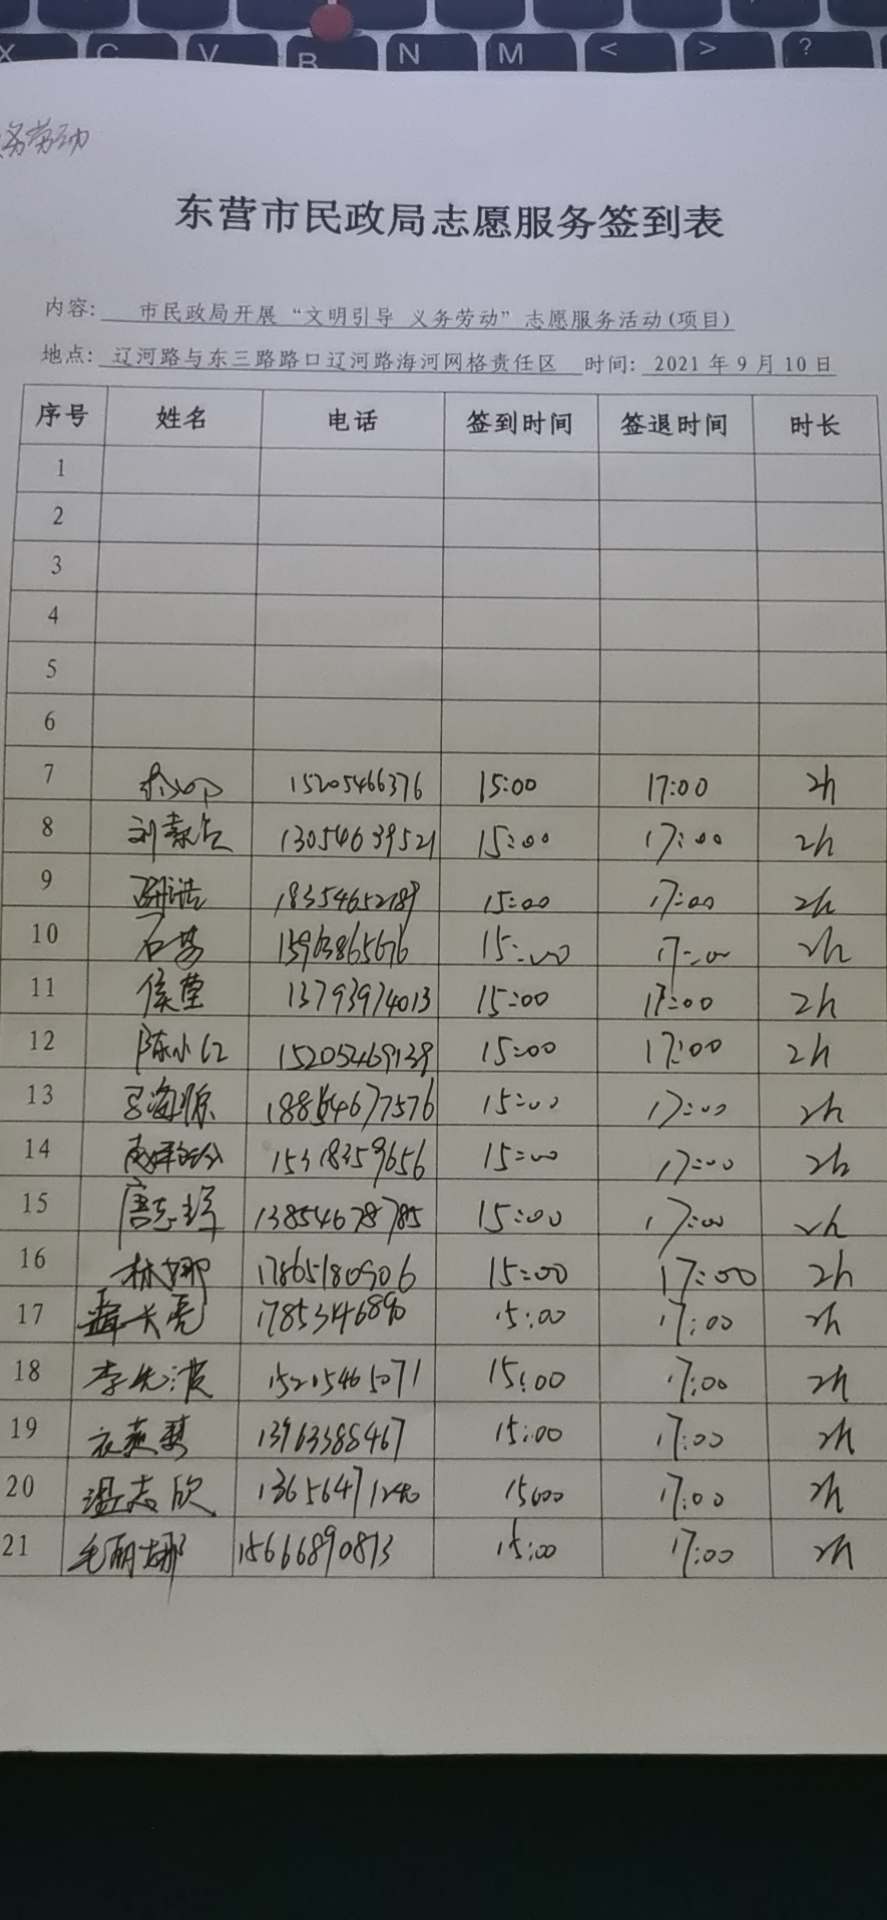 X C V B N M < > ?
务劳动
东营市民政局志愿服务签到表
内容: 市民政局开展“文明引导 义务劳动”志愿服务活动(项目)
地点: 辽河路与东三路路口辽河路海河网格责任区 时间: 2021年9月10日
序号 姓名 电话 签到时间 签退时间 时长
1
2
3
4
5
6
7 15205466376 15:00 17:00 2h
8 刘 13054639521 15:00 17:00 2h
9 18354652189 15:00 17:00 2h
10 石 15963865676 15:00 17:00 2h
11 侯莹 13793974013 15:00 17:00 2h
12 陈小红 15205469139 15:00 17:00 2h
13 吕海源 18854677576 15:00 17:00 2h
14 15318359656 15:00 17:00 2h
15 唐志 13854678785 15:00 17:00 2h
16 林娜 17865180906 15:00 17:00 2h
17 长亮 17853146890 15:00 17:00 2h
18 李先波 15205465071 15:00 17:00 2h
19 衣燕 13963388467 15:00 17:00 2h
20 温志欣 13656471240 15:00 17:00 2h
21 毛丽娜 15666890813 15:00 17:00 2h